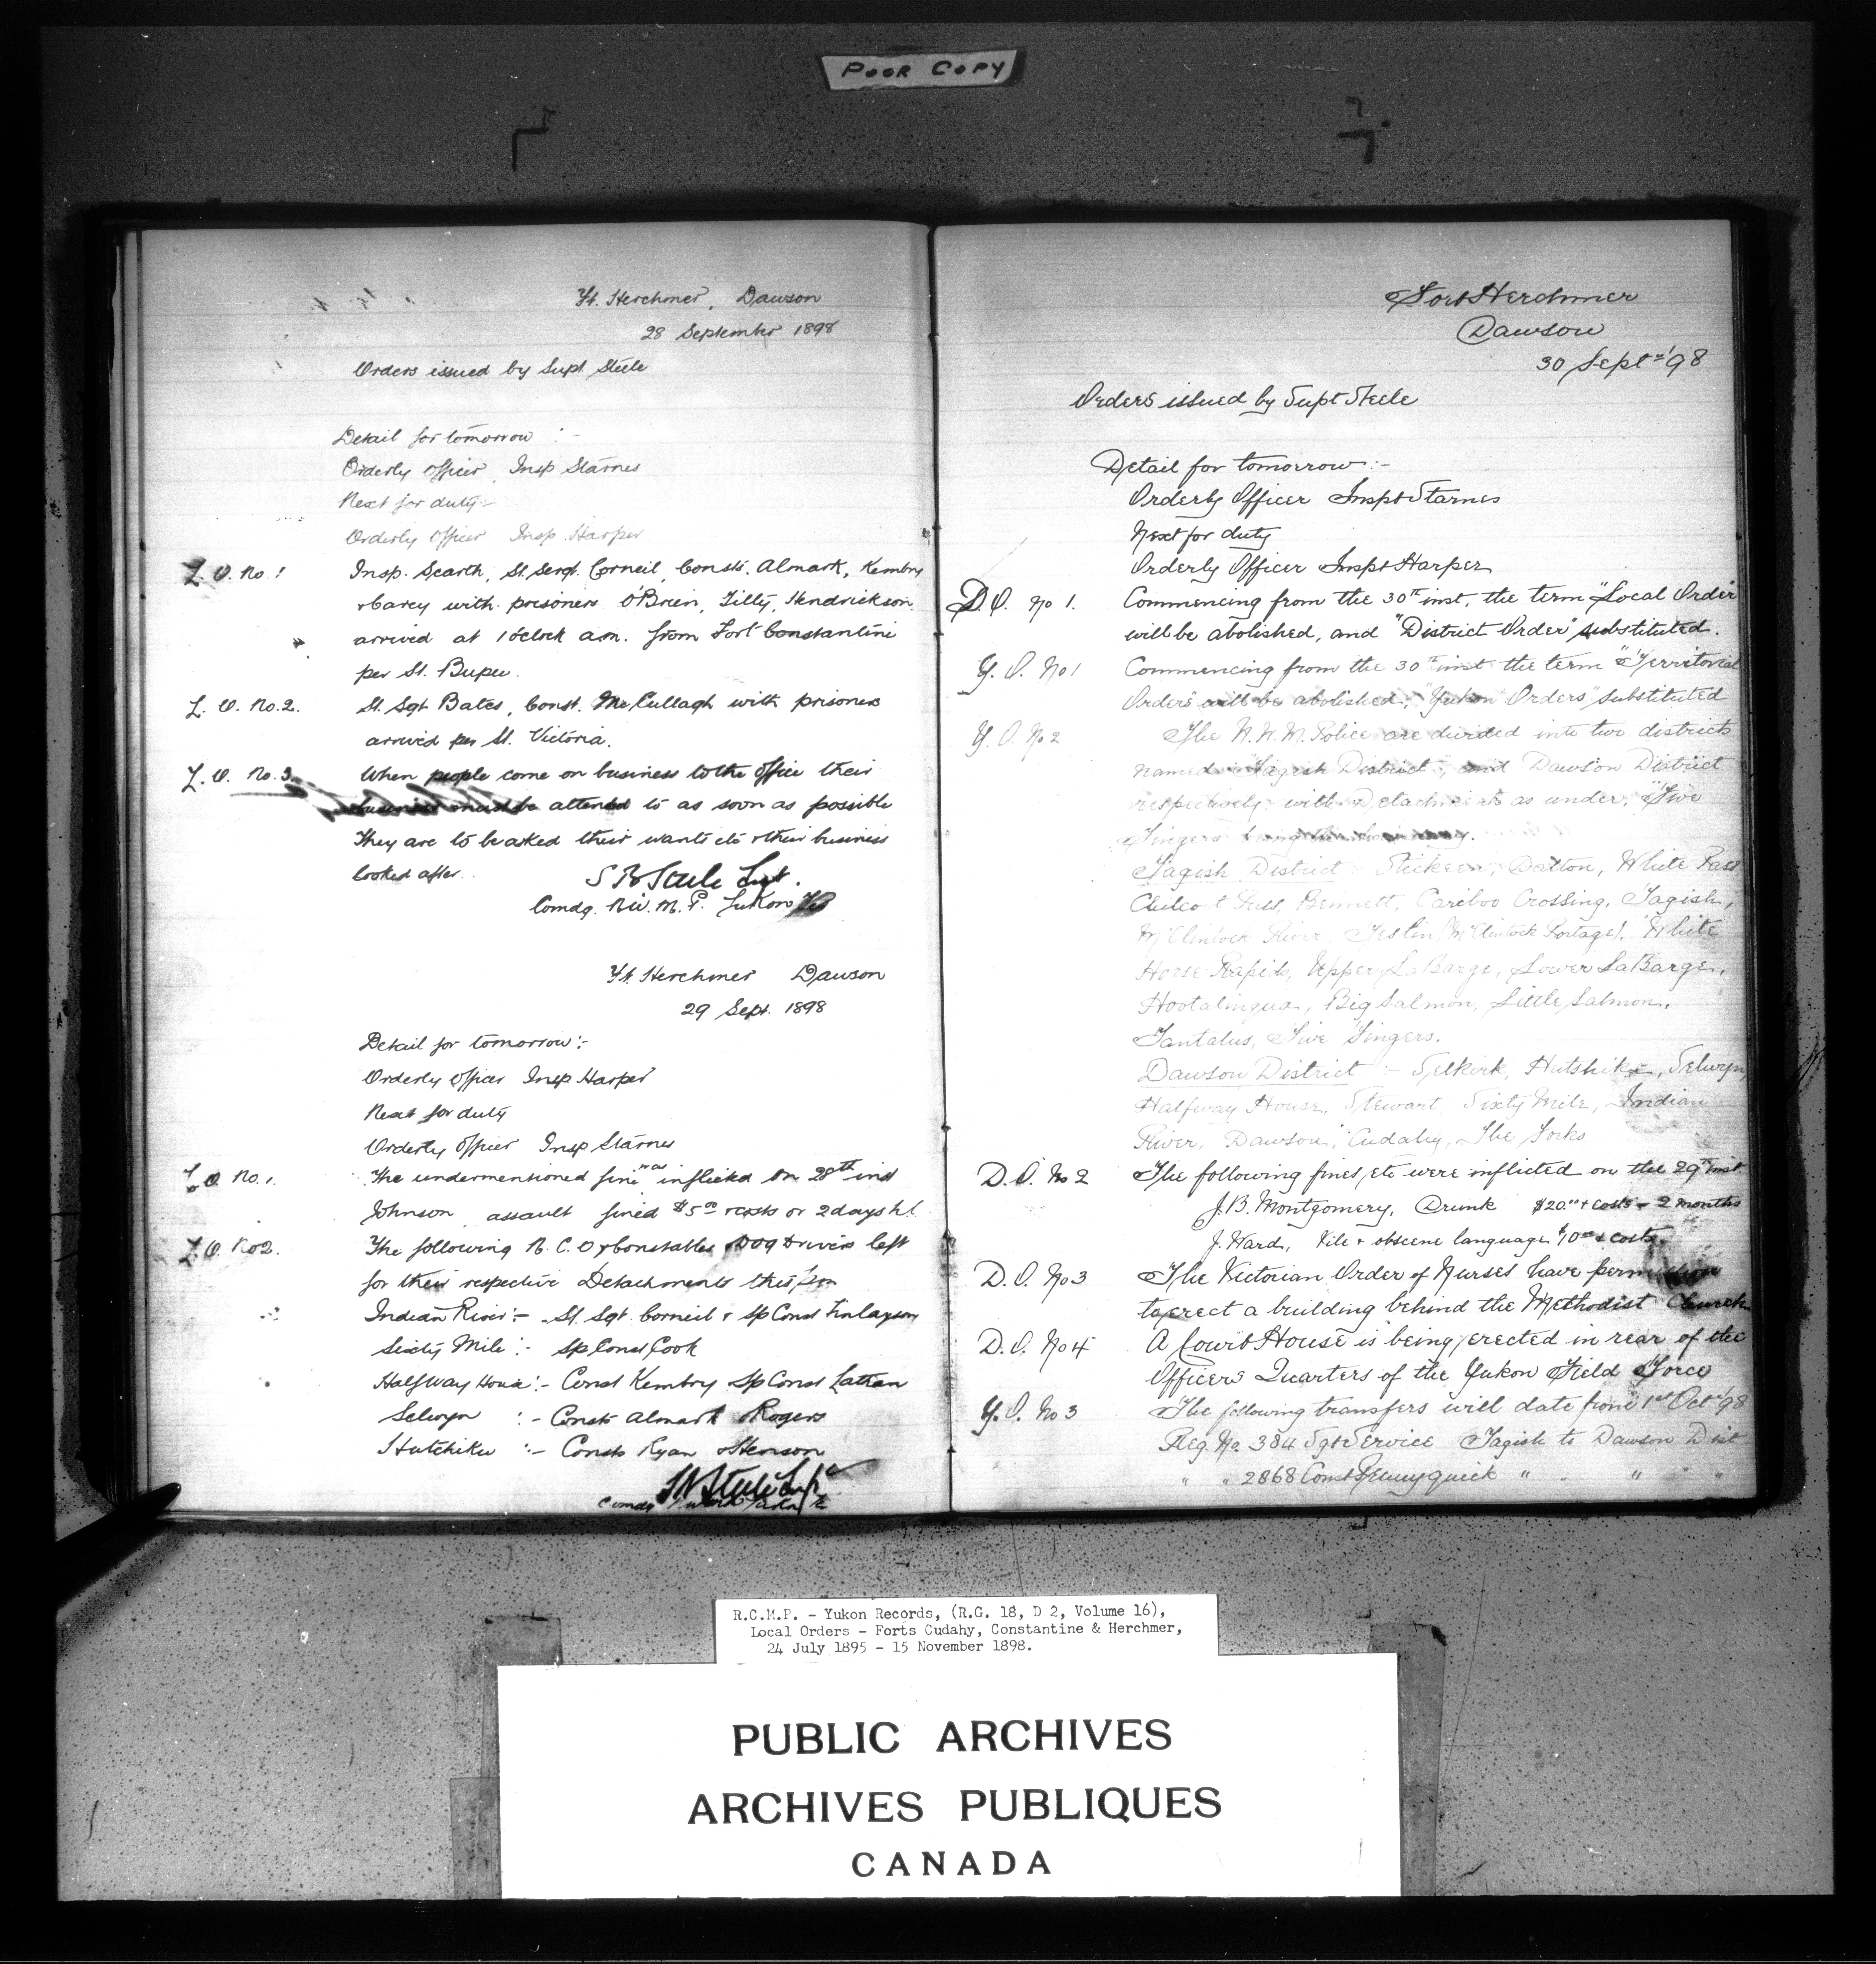 POOR COPY
Ft. Herchmer, Dawson
28 September 1898
Orders issued by Supt Steele
Detail for tomorrow :-
Orderly Officer, Insp Starnes
Next for duty:-
Orderly Officer Insp Harper
L. O. No. 1 Insp. Scarth, St. Sergt. Corneil, Consts. Almark, Kembry
& Carey with prisoners O'Brien, Tilly, Hendrickson
arrived at 1 o'clock a.m. from Fort Constantine
per St.
L. O. No. 2. St. Sgt Bates, Const. McCullagh with prisoners
arrived per St. Victoria.
L. O. No. 3. When people come on business to the office their
business must be attended to as soon as possible
They are to be asked their wants etc & their business
looked after.
S B Steele Supt.
Comdg. N.W.M.P. Yukon
Ft. Herchmer Dawson
29 Sept. 1898
Detail for tomorrow:-
Orderly Officer Insp Harper
Next for duty
Orderly Officer Insp Starnes
L. O. No. 1. The undermentioned fine was inflicted on 28th inst
Johnson assault fined $5 00 & costs or 2 days h.l.
L. O. No 2. The following N. C. O & Constables & Dog Drivers left
for their respective Detachments this
Indian River:- St. Sgt. Corneil & Sp Const Finlayson
Sixty Mile:- Sp Const Cook
Half Way House:- Const Kembry Sp Const
Selwyn :- Consts Almark & Rogers
Hutchiku :- Consts Ryan & Stenson
S B Steele Supt
Comdg
Fort Herchmer
Dawson
30 Sept '98
Orders issued by Supt Steele
Detail for tomorrow:-
Orderly Officer Inspt Starnes
Next for duty
Orderly Officer Inspt Harper
D. O. No 1. Commencing from the 30th inst, the term "Local Order"
will be abolished, and "District Order" substituted.
Y. O. No 1 Commencing from the 30th inst the term "Territorial
Orders" will be abolished, "Yukon Orders" substituted
Y. O. No 2 The N. W. M. Police are divided into two districts
named Tagish District, and Dawson District
respectively with Detachments as under, "Five
Fingers being the
Tagish District :- Stickeen, Dalton, White Pass
Chilcoot Pass, Bennett, Cariboo Crossing, Tagish,
McClintock River, Teslin (McClintock Portage), White
Horse Rapids, Upper LaBarge, Lower LaBarge,
Hootalinqua, Big Salmon, Little Salmon,
Tantalus, Five Fingers.
Dawson District :- Selkirk, Hutshiku, Selwyn,
Halfway House, Stewart, Sixty Mile, Indian
River, Dawson, Cudahy, The Forks
D. O. No 2 The following fines, etc were inflicted on the 29th inst.
J. B. Montgomery, Drunk $20.00 & costs 2 months
J. Ward, Vile & obscene language $10 00 & costs.
D. O. No 3 The Victorian Order of Nurses have permission
to erect a building behind the Methodist Church
D. O. No 4 A Court House is being erected in rear of the
Officers Quarters of the Yukon Field Force
Y. O. No 3 The following transfers will date from 1st Oct '98
Reg. No. 384 Sgt Service Tagish to Dawson Dist
" " 2868 Const Pennyquick " " "
R.C.M.P. - Yukon Records, (R.G. 18, D 2, Volume 16),
Local Orders - Forts Cudahy, Constantine & Herchmer,
24 July 1895 - 15 November 1898.
PUBLIC ARCHIVES
ARCHIVES PUBLIQUES
CANADA